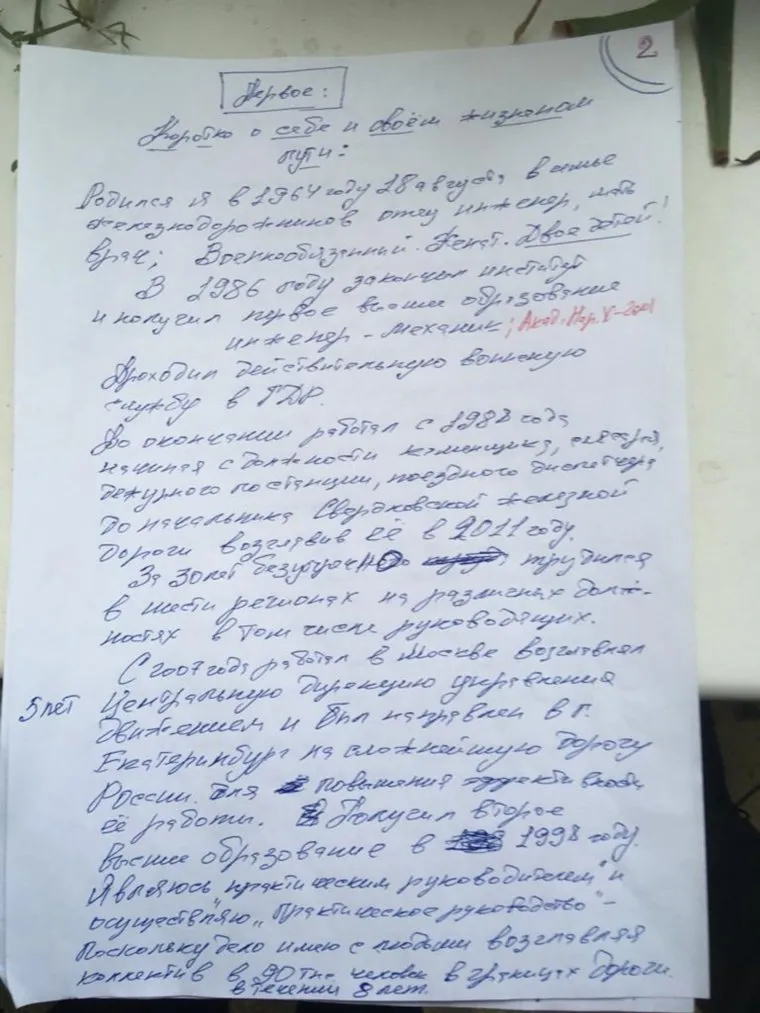 2
Первое:
Коротко о себе и своём жизненом
пути:
Родился я в 1964 году 18 августа, в семье
железнодорожников отец инженер, мать
врач; Военнообязанный. Женат. Двое детей!
В 1986 году закончил институт
и получил первое высшее образование
инженер-механик; Акад. Нар. Х-2001
Проходил действительную воинскую
службу в ГДР.
По окончании работал с 1988 года
начиная с должности
дежурного по станции, поездного диспетчера,
до начальника Свердловской железной
дороги возглавив её в 2011 году.
За 30 лет безупречно трудился
в шести регионах на различных долж-
ностях в том числе руководящих.
С 2007 года работал в Москве возглавлял
5 лет Центральную дирекцию управления
движением и был направлен в г.
Екатеринбург на сложнейшую дорогу
России. Для повышения эффективности
её работы. Получил второе
высшее образование в 1998 году.
Являюсь "практическим руководителем" и
осуществляю "Практическое руководство" -
Поскольку дело имею с людьми возглавляя
коллектив в 90 тыс человек в границах дороги.
в течении 8 лет.